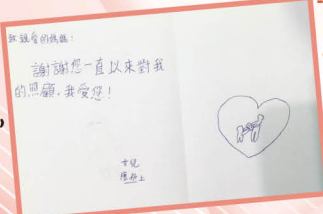 致親愛的媽媽：
謝謝您一直以來對我
的照顧。我愛您！
女兒
上